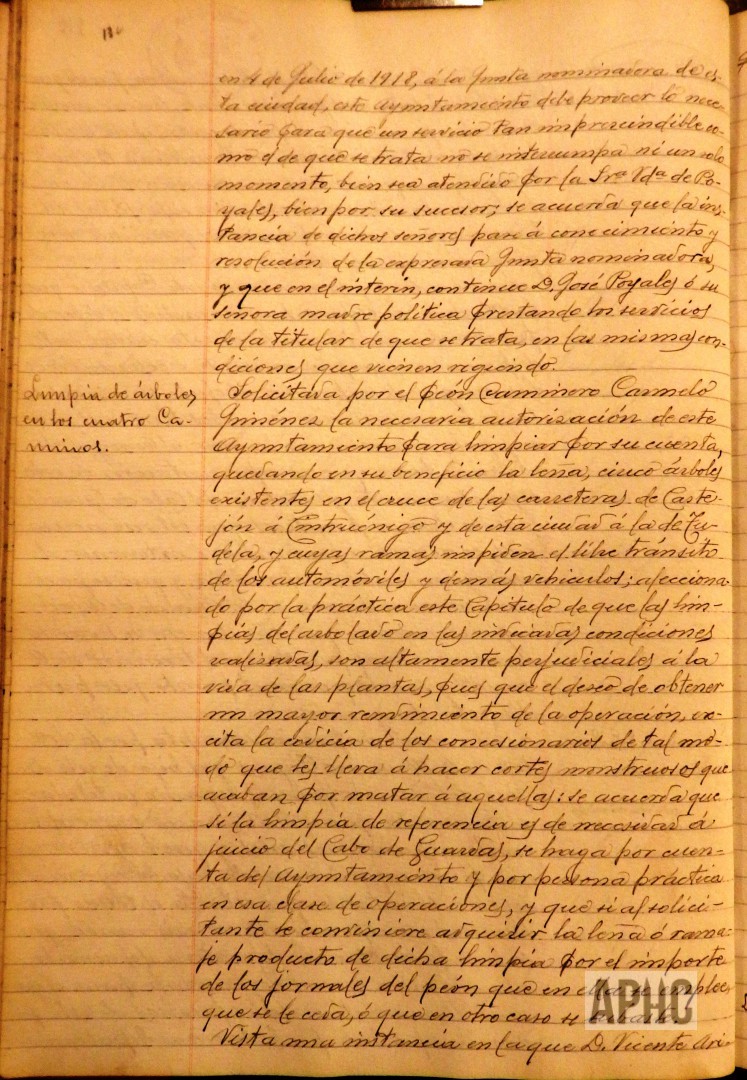 en 4 de Julio de 1918, á la Junta nominadora de es-
ta ciudad, este Ayuntamiento debe proveer lo nece-
sario para que un servicio tan imprescindible co-
mo el de que se trata no se interrumpa ni un solo
momento, bien sea atendido por la Srª Vdª de Po-
yales, bien por su sucesor; se acuerda que la ins-
tancia de dichos señores pase á conocimiento y
resolución de la expresada Junta nominadora,
y que en el interin, continue D. José Poyales ó su
señora madre política prestando los servicios
de la titular de que se trata, en las mismas con-
diciones que vienen rigiendo.
Limpia de árboles
en los cuatro Ca-
minos.
Solicitada por el peón Caminero Carmelo
Giménez la necesaria autorización de este
Ayuntamiento para limpiar por su cuenta,
quedando en su beneficio la leña, cinco árboles
existentes en el cruce de las carreteras de Caste-
jón á Cintruénigo y de esta ciudad á la de Tu-
dela, y cuyas ramas impiden el libre tránsito
de los automóviles y demás vehiculos; alecciona-
do por la práctica este Capitulo de que las lim-
pias del arbolado en las indicadas condiciones
realizadas, son altamente perjudiciales á la
vida de las plantas, pues que el deseo de obtener
un mayor rendimiento de la operación, ex-
cita la codicia de los concesionarios de tal mo-
do que les lleva á hacer cortes monstruosos que
acaban por matar á aquellas: se acuerda que
si la limpia de referencia es de necesidad á
juicio del Cabo de Guardas, se haga por cuen-
ta del Ayuntamiento y por persona práctica
en esa clase de operaciones, y que si al solici-
tante le conviniere adquirir la leña ó rama-
je producto de dicha limpia por el importe
de los jornales del peón que en ella se emplee
que se le ceda, ó que en otro caso se subaste.
Vista una instancia en la que D. Vicente Ari-
APHC